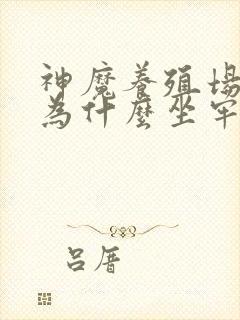 神魔養殖場
為什麼坐牢
呂厝